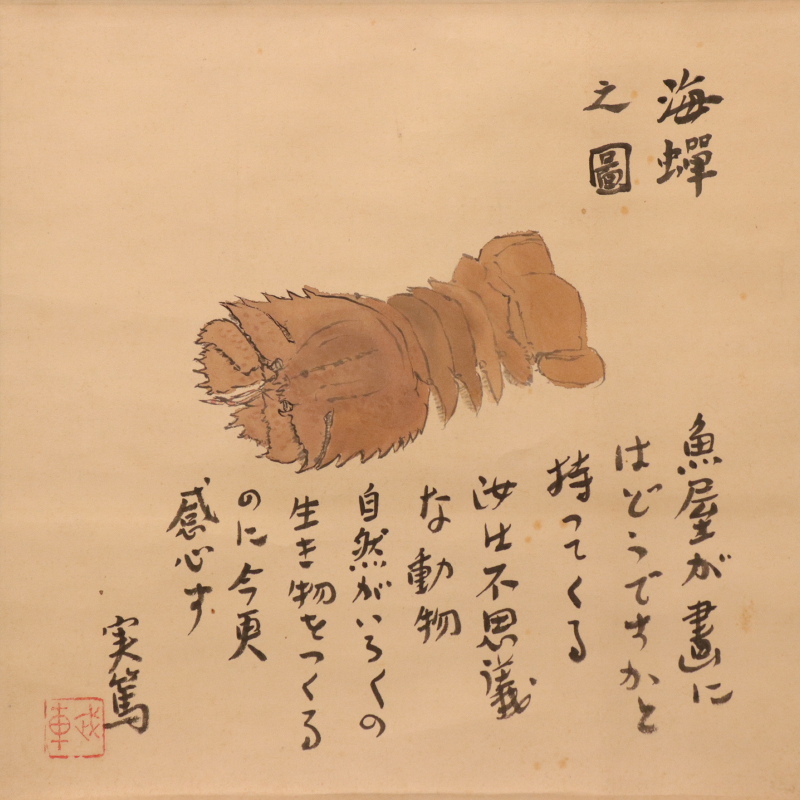 海蟬
之圖
魚屋が畫に
はどうですかと
持ってくる
汝は不思議
な動物
自然がいろくの
生き物をつくる
のに今更
感心す
実篤